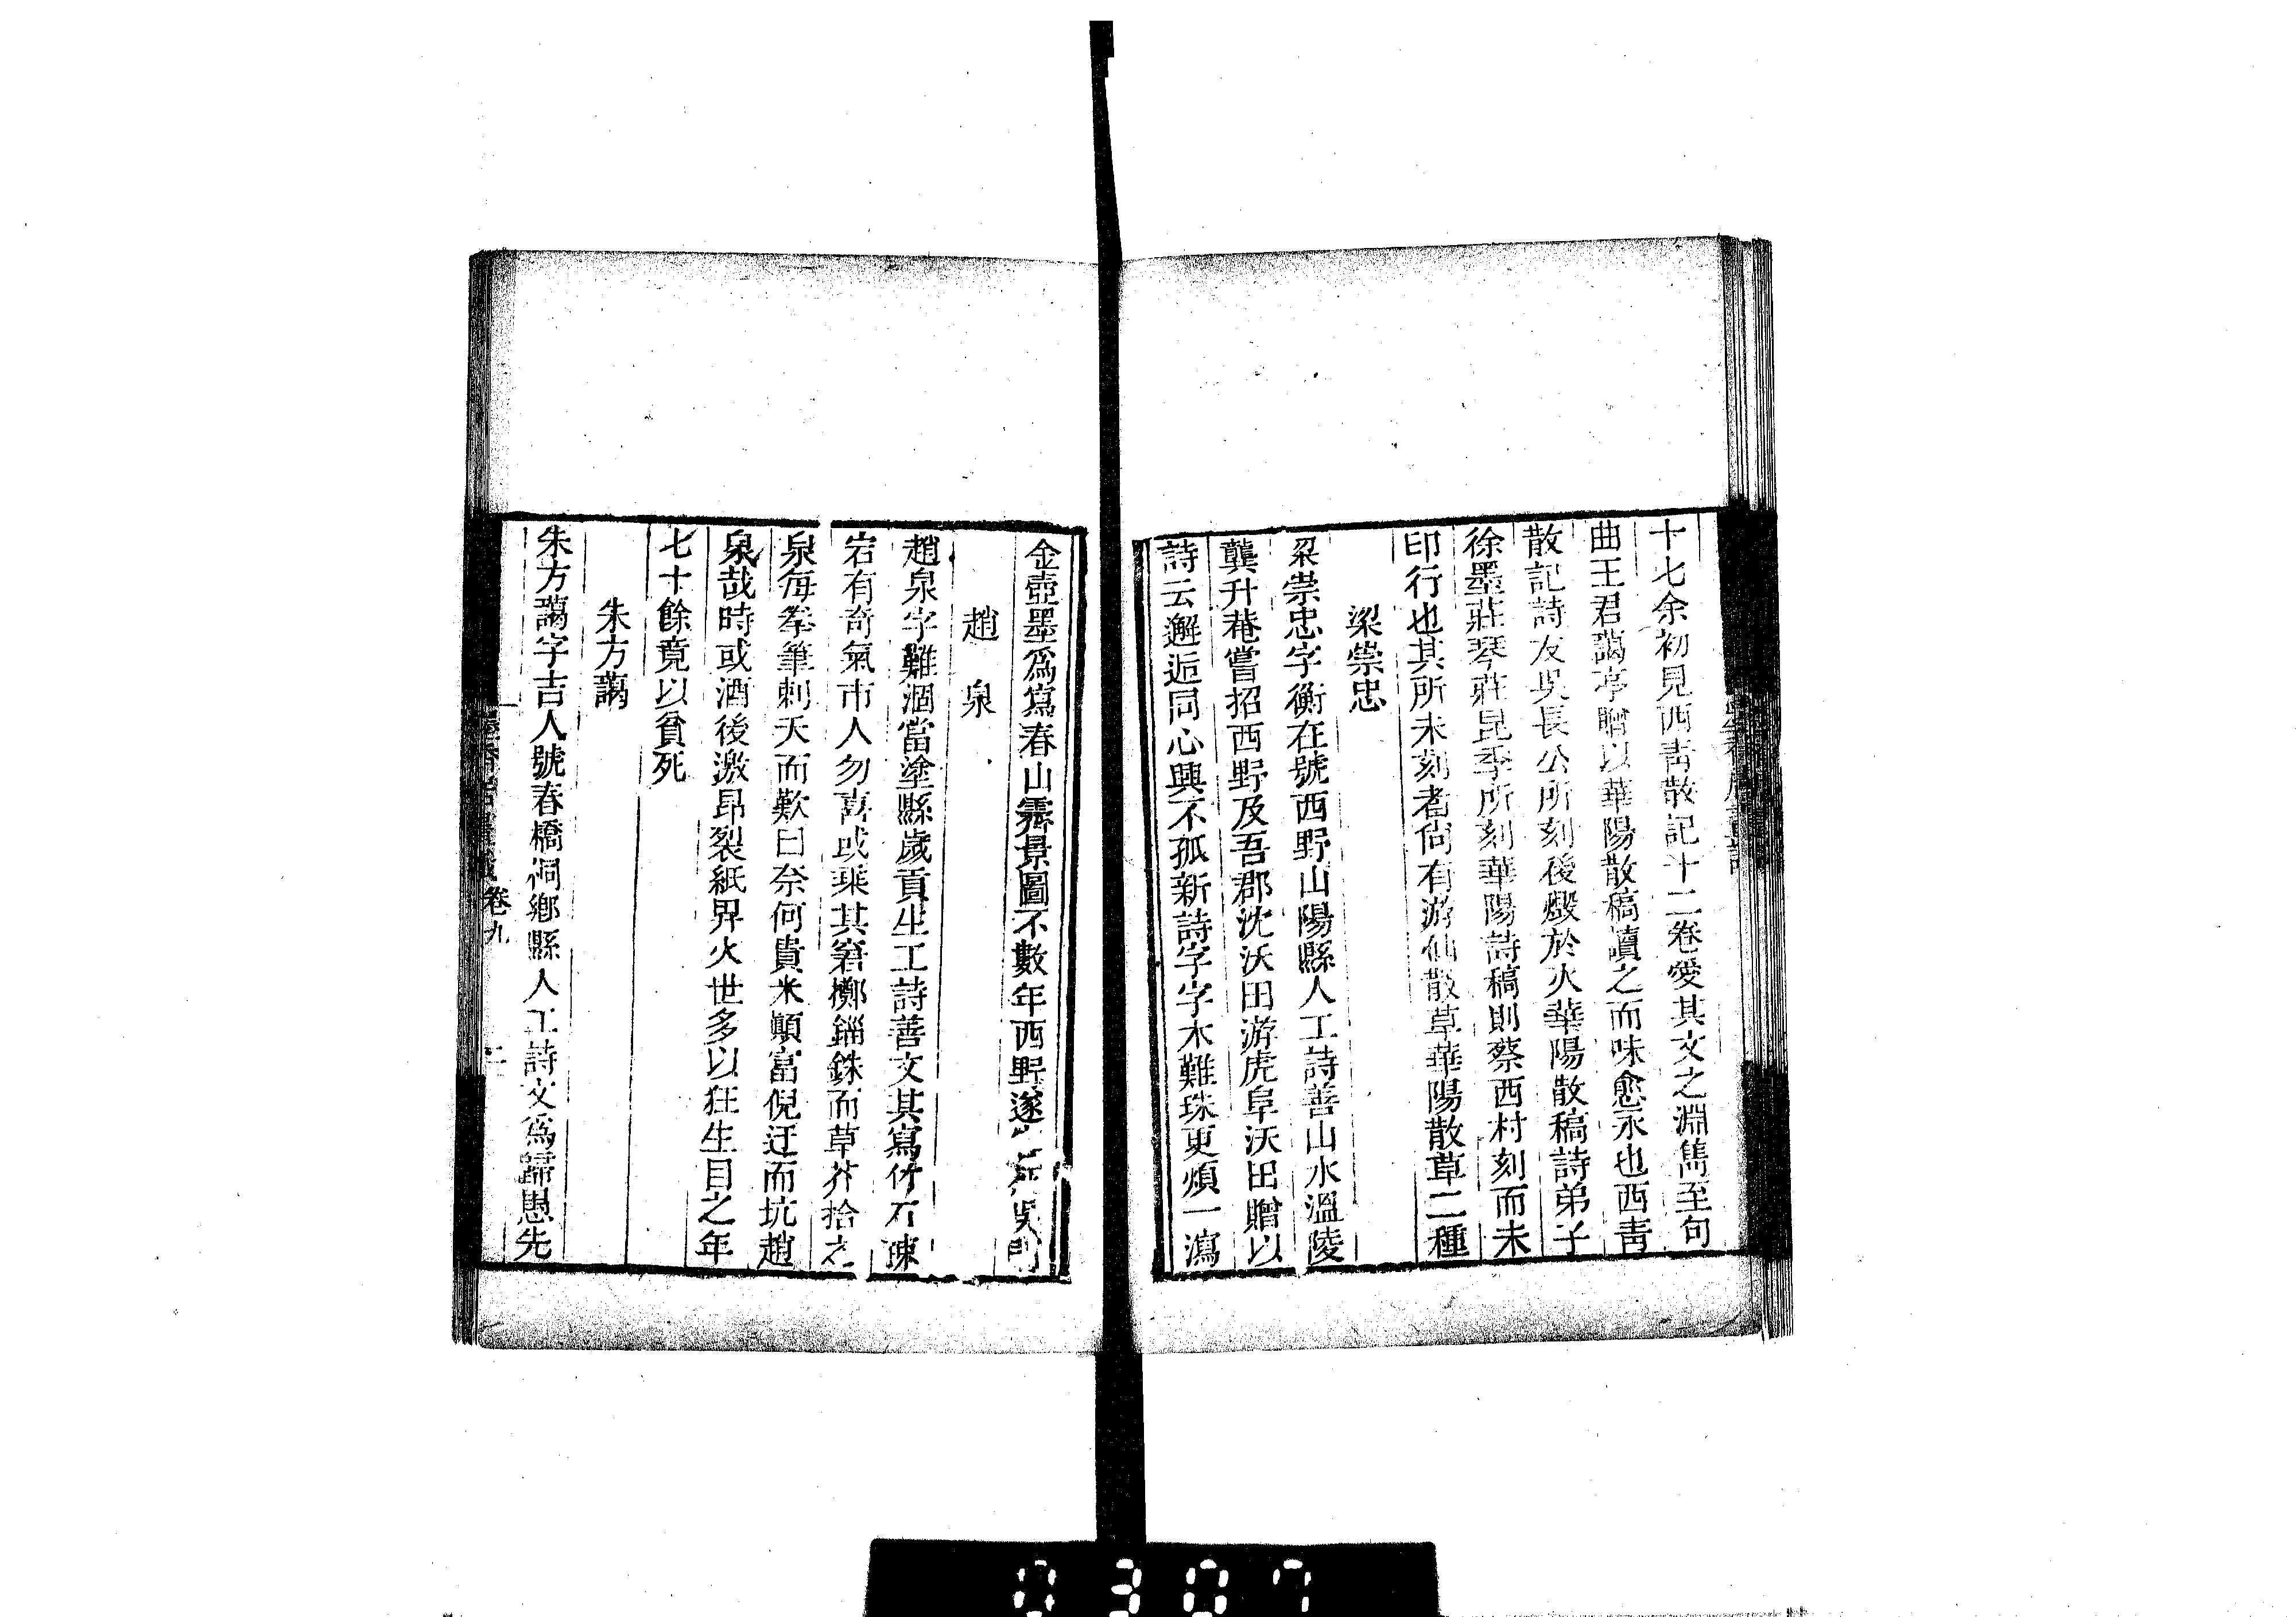 十七余初見西青散記十二卷愛其文之淵雋至句
曲王君藹亭贈以華陽散稿讀之而味愈永也西青
散記詩友吳長公所刻後燬於火華陽散稿詩弟子
徐墨莊琴莊昆季所刻華陽詩稿則蔡西村刻而未
印行也其所未刻者尙有游仙散草華陽散草二種
梁崇忠
梁崇忠字衡在號西野山陽縣人工詩善山水溫陵
龔升菴嘗招西野及吾郡沈沃田游虎阜沃田贈以
詩云邂逅同心興不孤新詩字字木難珠更煩一瀉
金壺墨爲寫春山霽景圖不數年西野遂
吳門
趙泉
趙泉字難涸當塗縣歲貢生工詩善文其寫竹石疎
宕有奇氣市人勿喜或乘其窘擲錙銖而草芥拾之
泉每拳筆刺天而歎曰奈何貴米顚富倪迂而坑趙
泉哉時或酒後激昂裂紙畀火世多以狂生目之年
七十餘竟以貧死
朱方藹
朱方藹字吉人號春橋桐鄉縣人工詩文爲歸愚先
卷九
二
0307